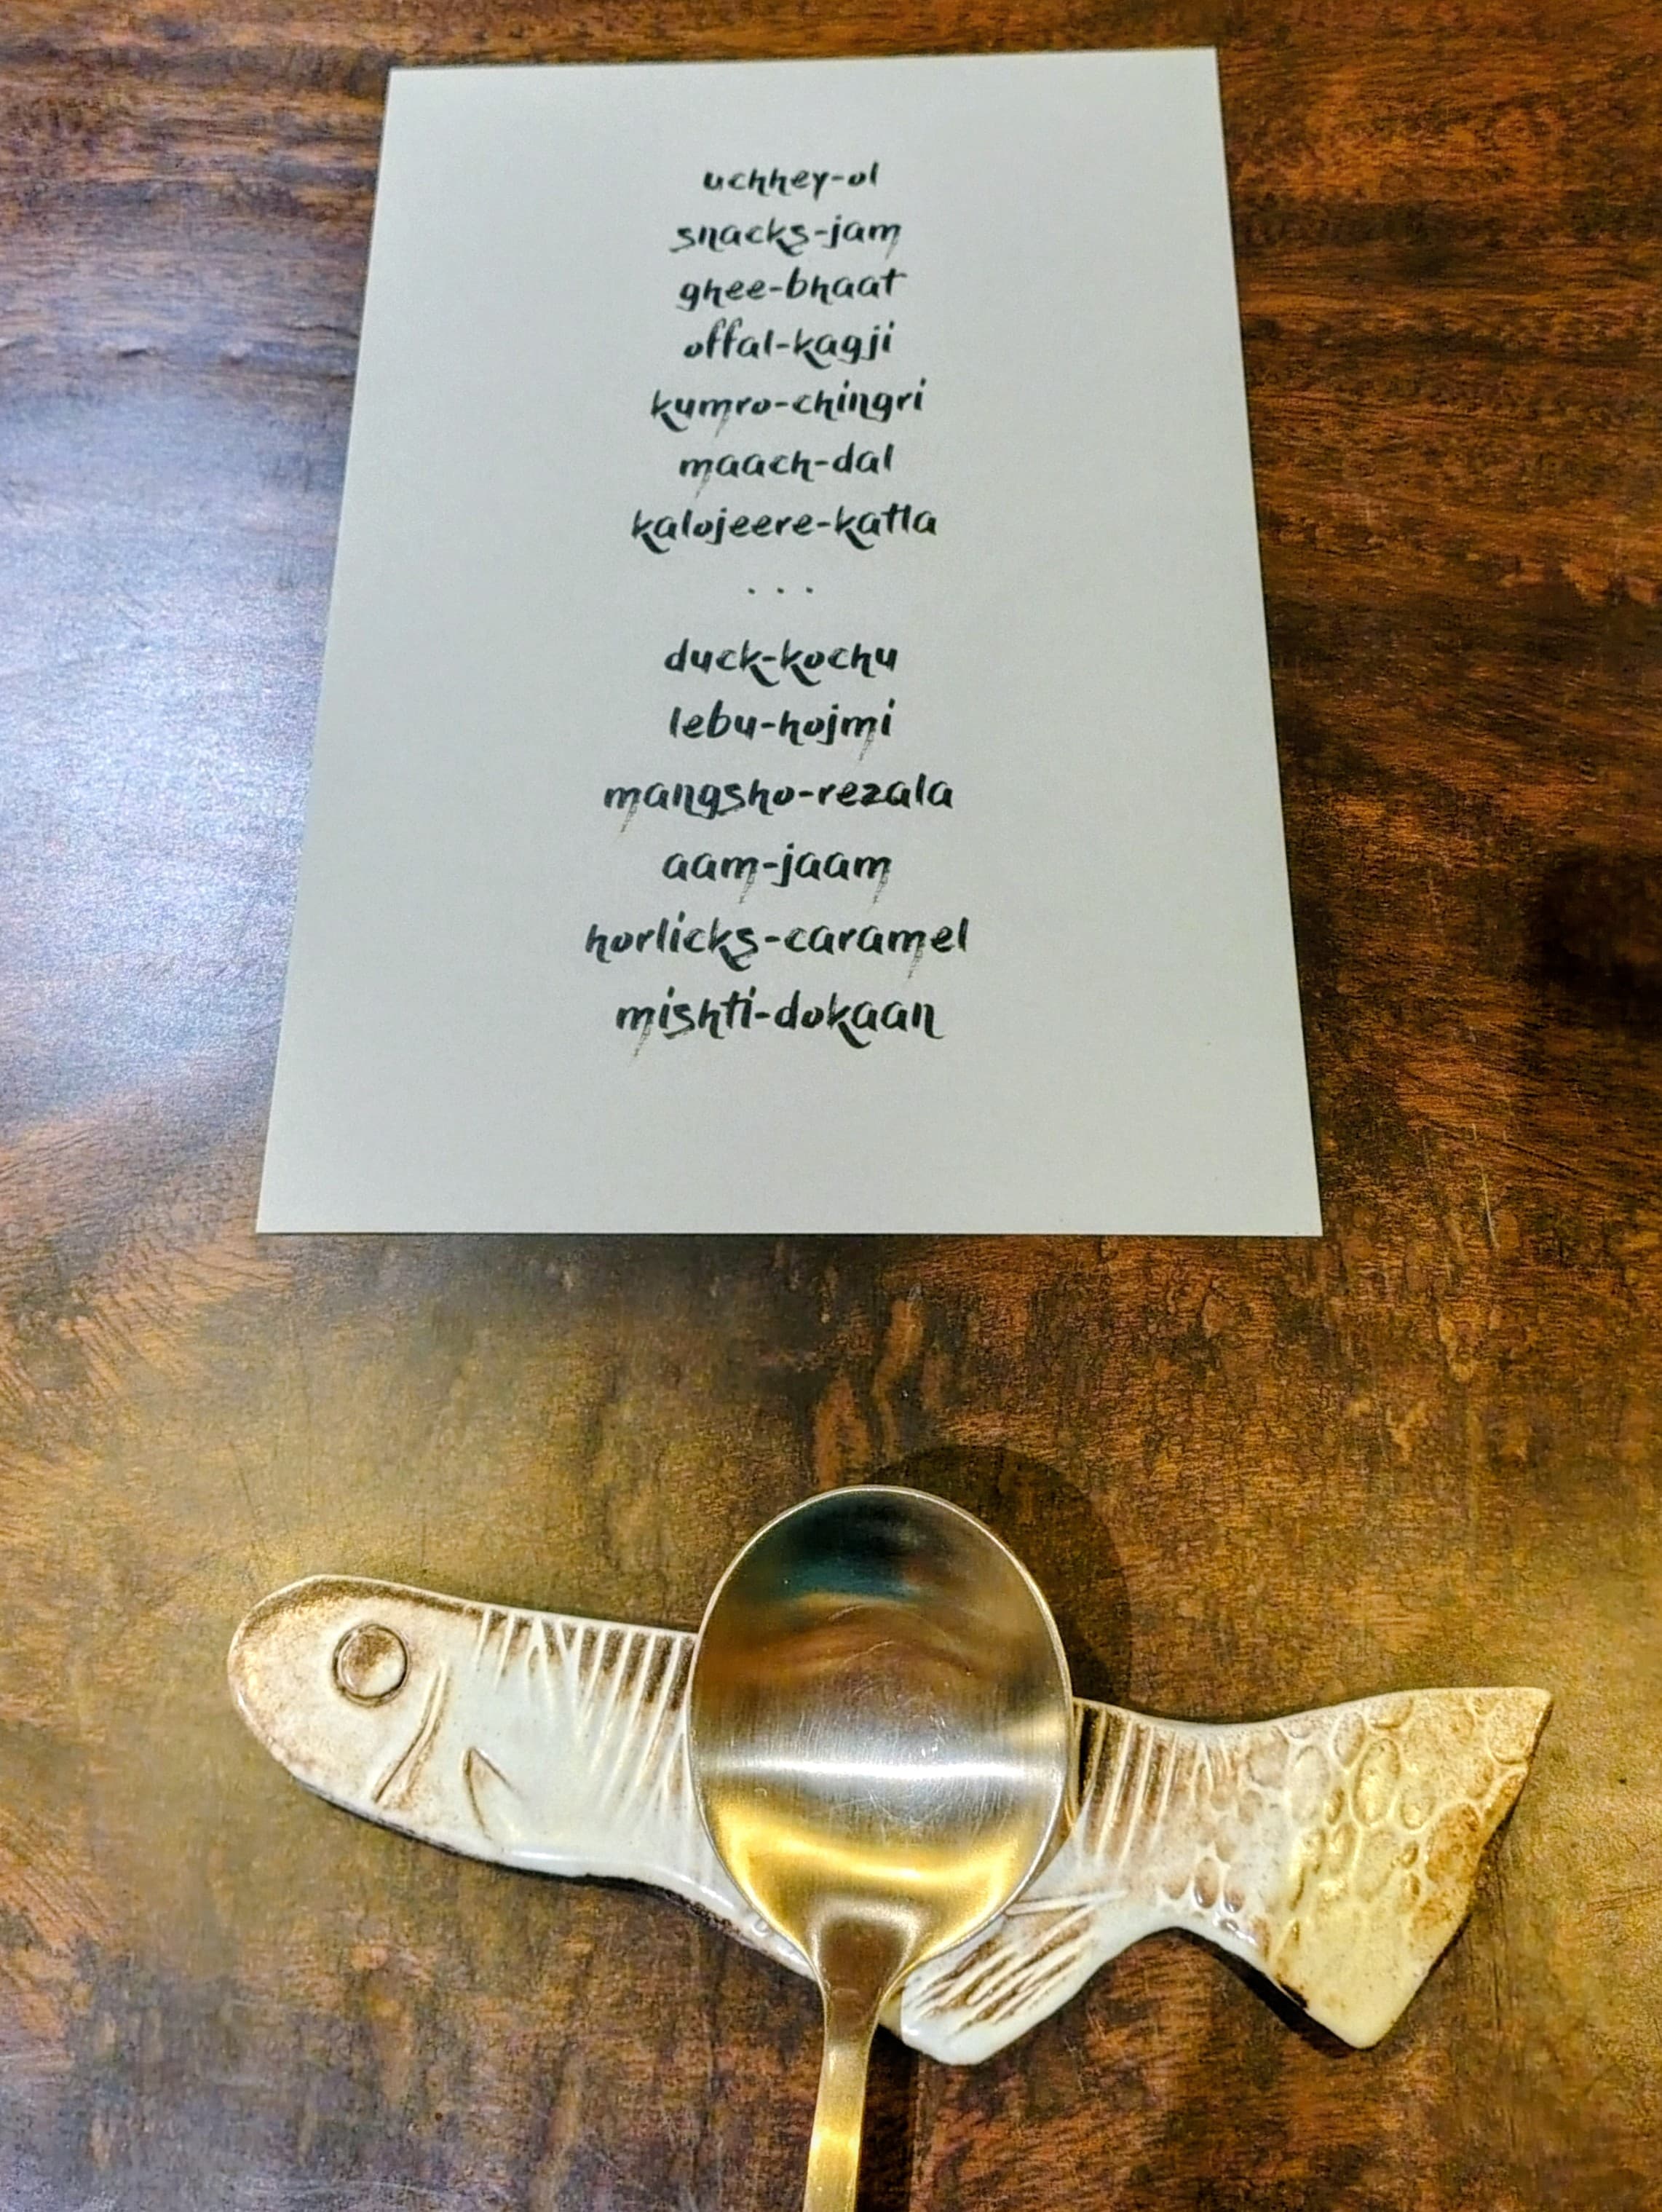 uchhey-ol
snacks-jam
ghee-bhaat
offal-kagji
kumro-chingri
maach-dal
kalojeere-katla
...
duck-kochu
lebu-hojmi
mangsho-rezala
aam-jaam
horlicks-caramel
mishti-dokaan